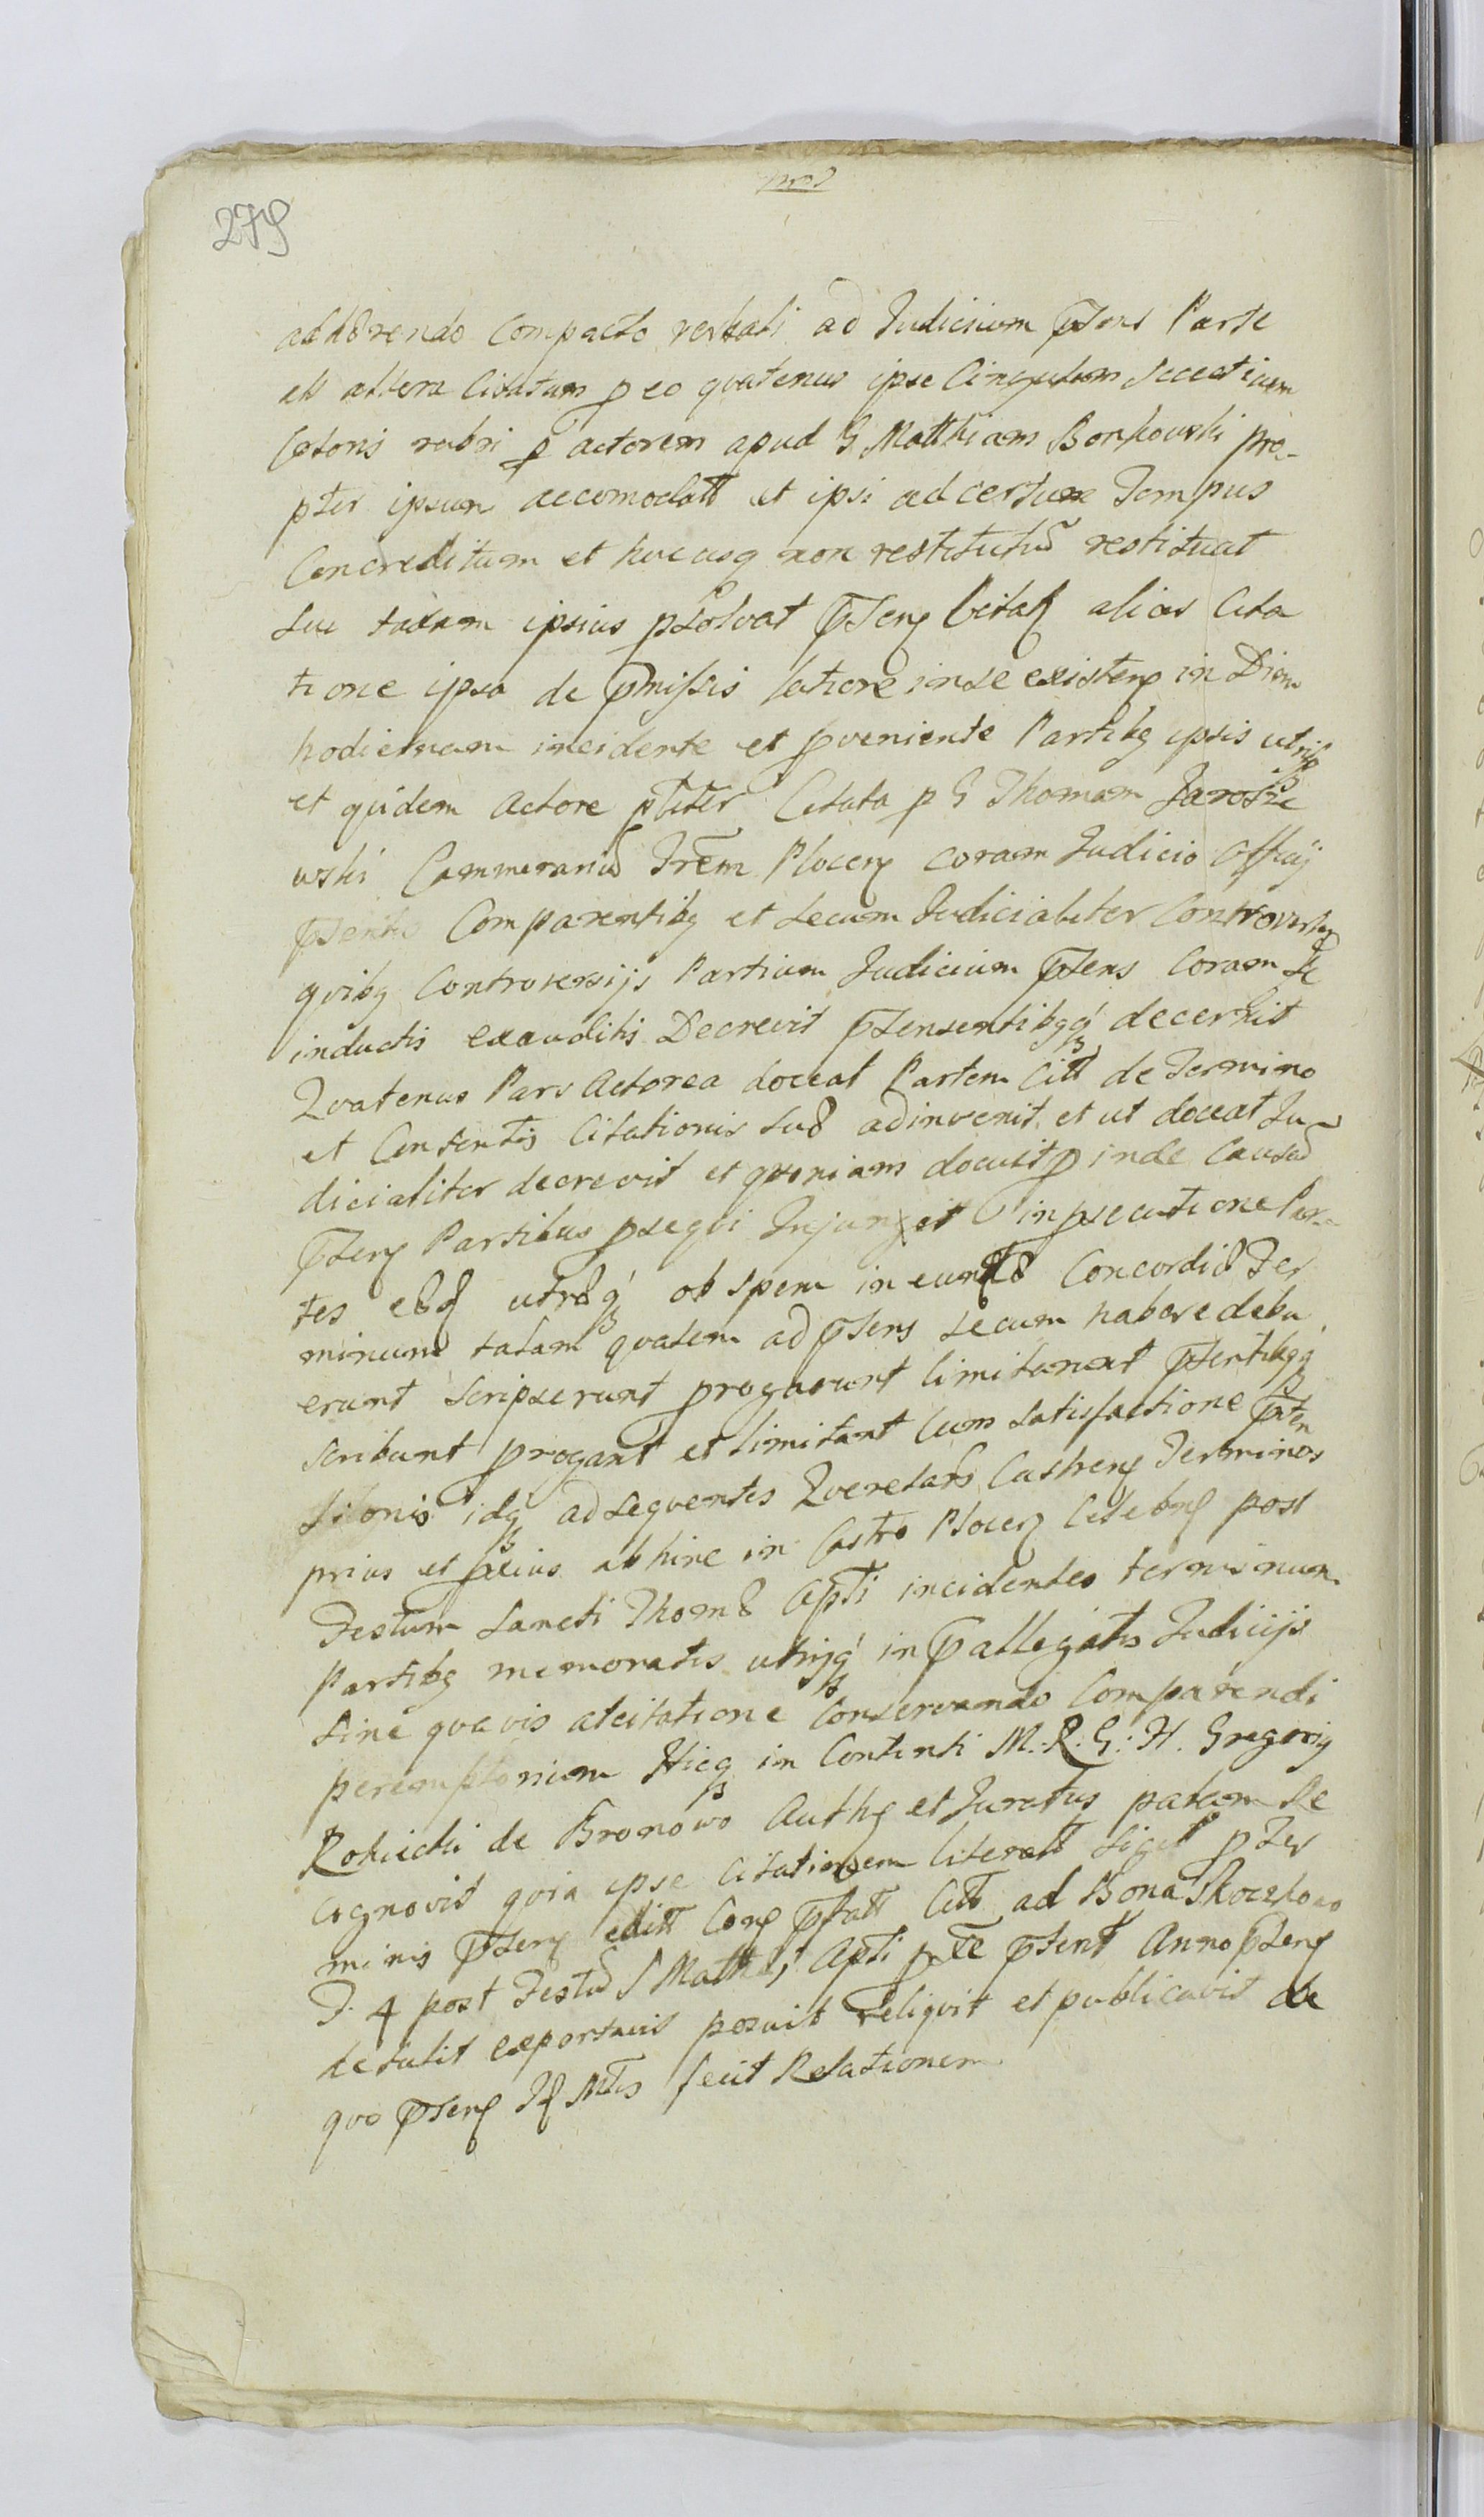 279
adhærendo Compacto verbali ad Judicium pñs Parte
ab altera Citatum p eo quatenus ipse Cingulum
rubri p actorem apud G Matthiam Borkowski pro-
pter ipsum accomodatt et ipsi ad certum Tempus
Concreditum et hucusq non restitutũ restituat
Seu taxam ipsius psolvat pñsenq Citaõ alias Cita
tione ipsa de pmissis latiore in se existenq in Diem
hodiernam incidente et pveniente Partibq ipsis utrisq
et quidem Actore pliter Citata p G Thomam Jarosze
wski Cammerariũ Trem Plocenq coram Judicio Officij
pñsentis Comparentibq et secum Judicialiter Controverten
quibq Controversijs Partium Judicium pñsens Coram se
inductis exauditis Decrevit pñsensentibqq decernit
Quatenus Pars Actorea doceat Partem Citt de Termino
et Contentis Citationis suæ adinvenit et ut doceat Ju-
dicialiter decrevit et quoniam docuit pinde Causã
pñsenq Partibus psequi Injunxit in psecutione Par-
tes eæd utræq ob spem ineundæ Concordiæ Ter
minum talem qualem ad pñsens secum habere debu
erunt scripserunt progarunt limitarunt pñsentibqq
scribunt progant et limitant cum satisfactione pñten
sionis idq ad sequentes Querelar Castrenq Terminos
prius et pxius abhinc in Castro Plocenq Celebrq post
Festum Sancti Thomæ Apli incidentes terminum
Partibq memoratis utrisq in pallegatis Judicijs
sine quavis adcitatione Conservando Comparendi
peremptorium Hicq in Continti M. R. G. H. Gregoriq
Rokicki de Bronowo Authq et Juratus palam Re
cognovit quia ipse Citationem literatt Sigill pTer
minis pñsenq editt Conq pfatt Citt ad Bona Skoczkowo
F. 4 post Festũ S Matthæi Apli pxe pñterit Anno pñsenq
detulit exportavit posuit reliquit et publicavit de
quo pñsenq Mtis fecit Relationem